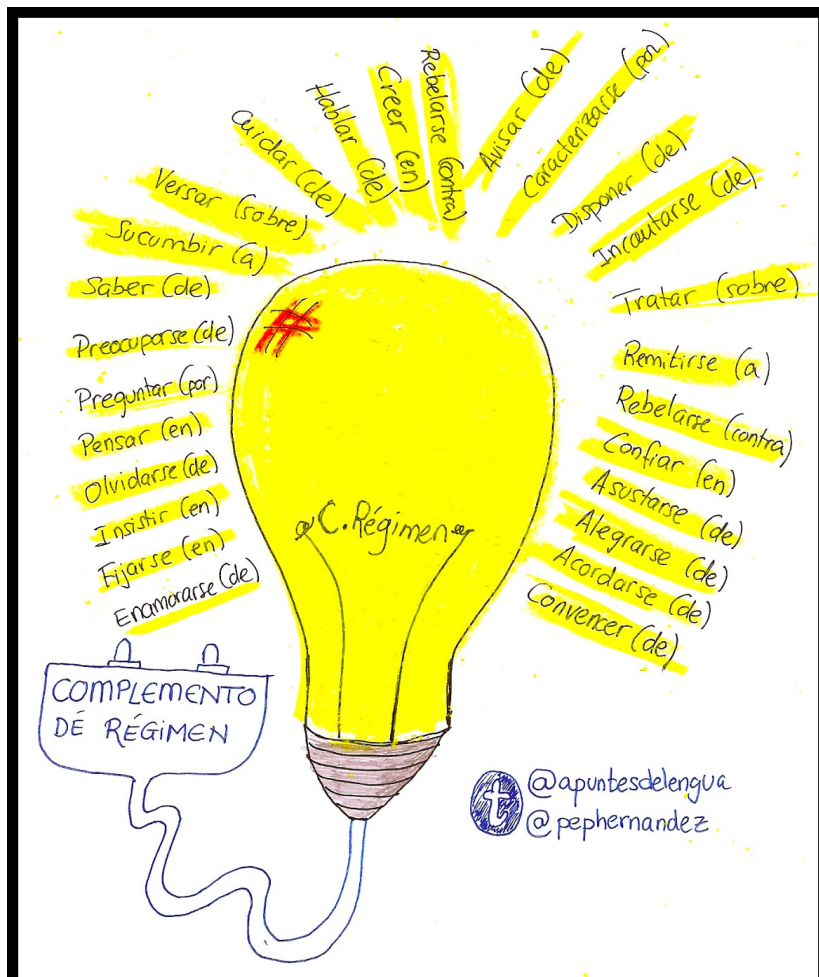 Enamorarse (de)
Fijarse (en)
Insistir (en)
Olvidarse (de)
Pensar (en)
Preguntar (por)
Preocuparse (de)
Saber (de)
Sucumbir (a)
Versar (sobre)
Cuidar (de)
Hablar (de)
Creer (en)
Rebelarse (contra)
Avisar (de)
Caracterizarse (por)
Disponer (de)
Incautarse (de)
Tratar (sobre)
Remitirse (a)
Rebelarse (contra)
Confiar (en)
Asustarse (de)
Alegrarse (de)
Acordarse (de)
Convencer (de)
#
C. Régimen
COMPLEMENTO
DE RÉGIMEN
t @apuntesdelengua
@pephernandez